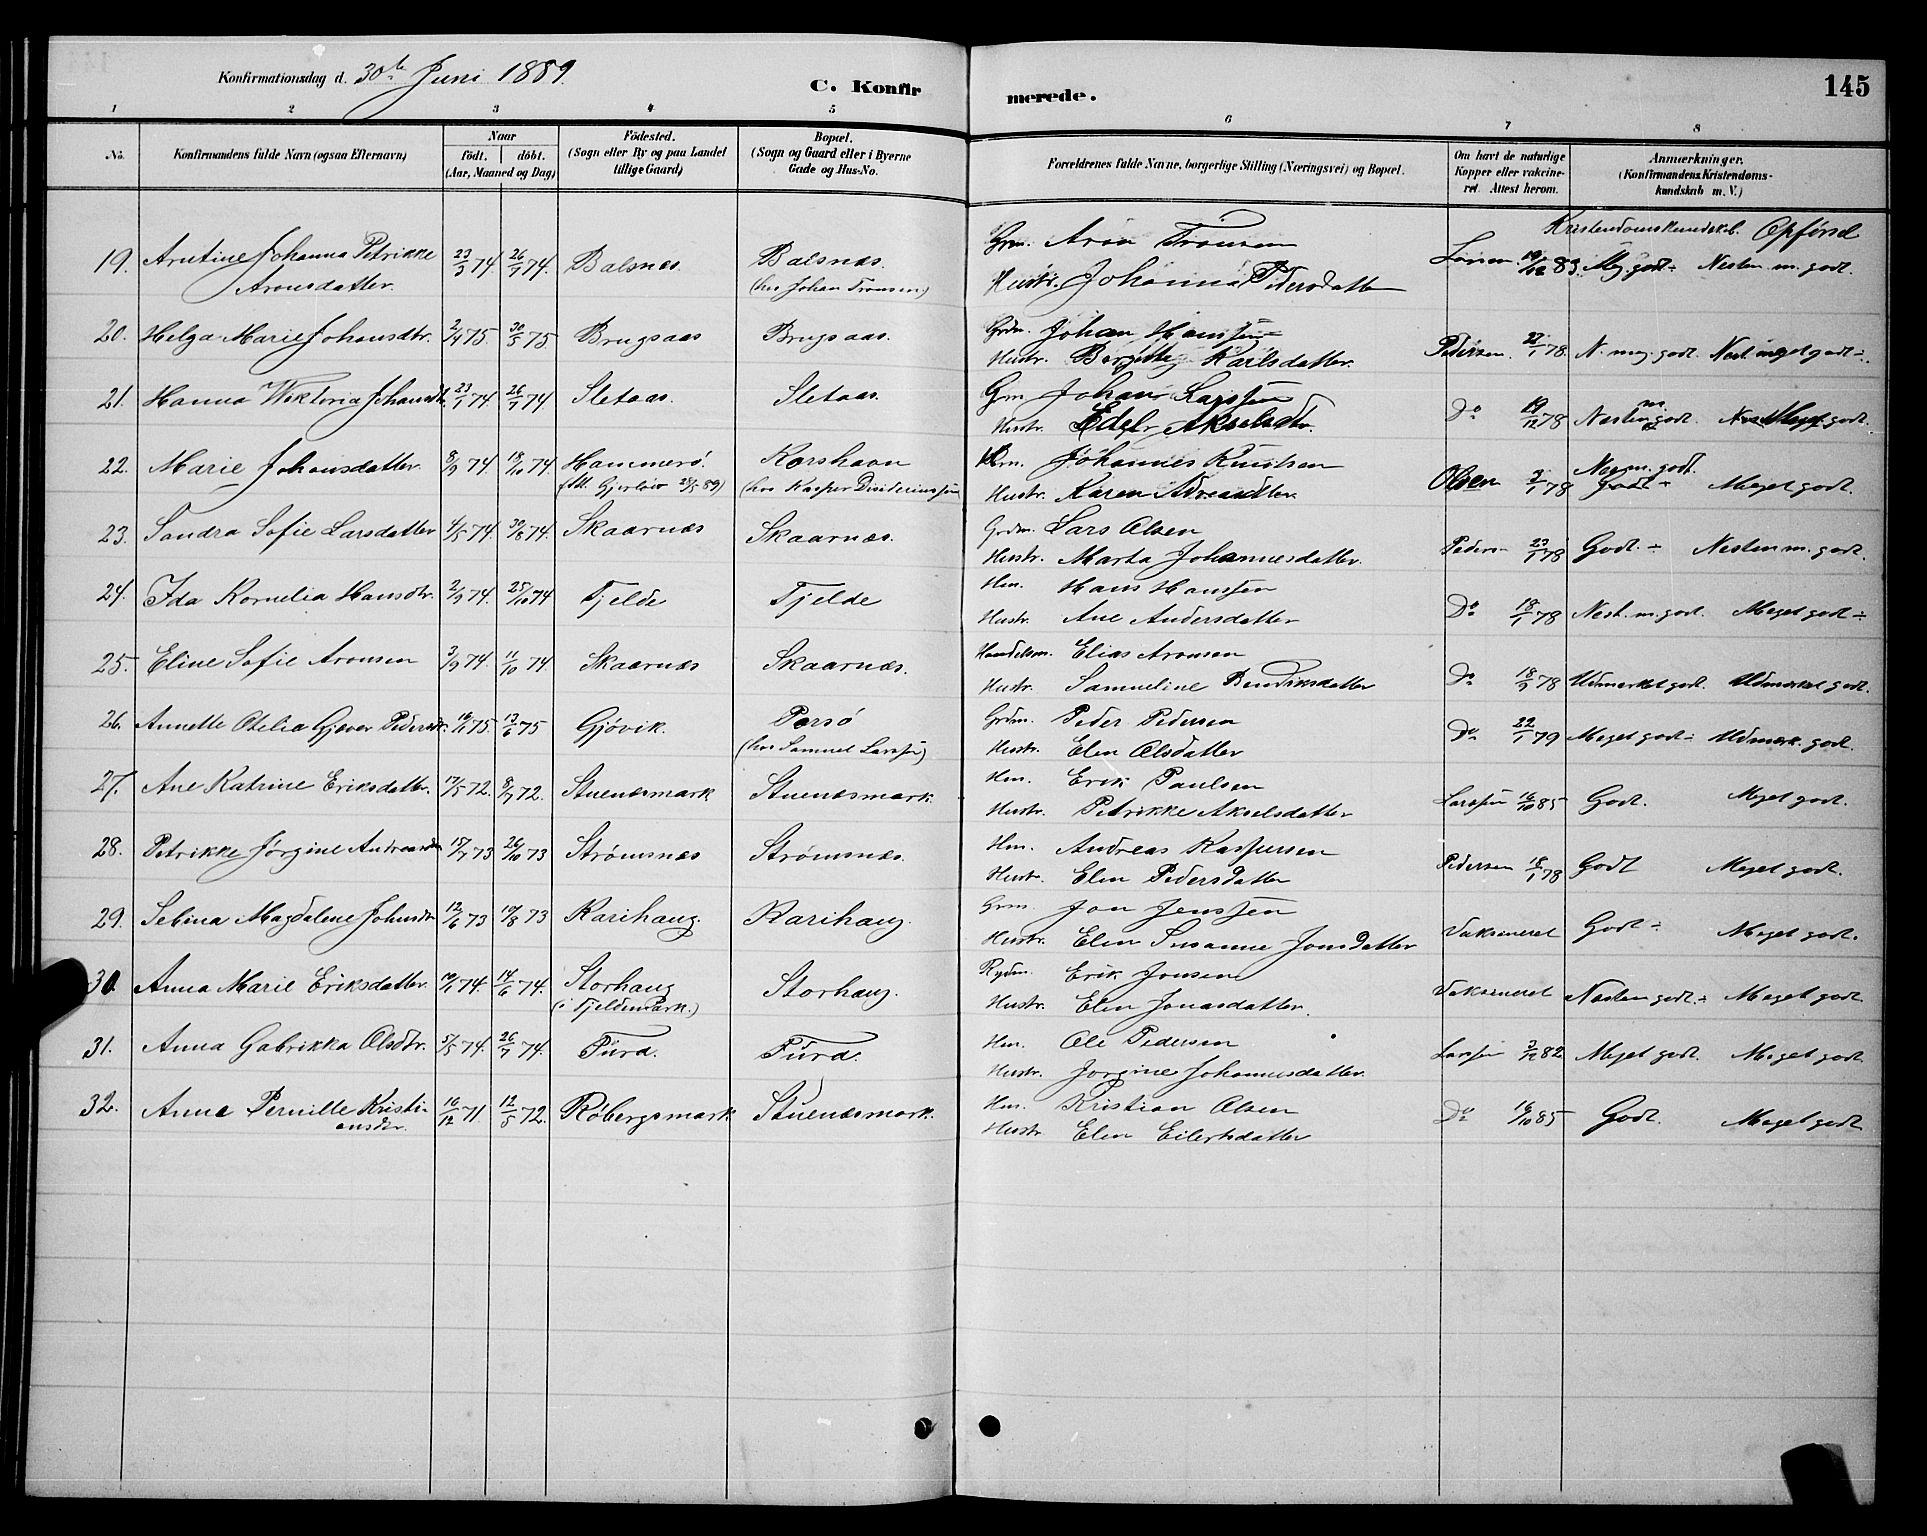 Konfirmationsdag d. 30te Juni 1889.
C. Konfirmerede.
145
1 2 3 4 5 6 7 8
No.
Konfirmandens fulde Navn (ogsaa Efternavn)
Naar
födt. döbt.
(Aar, Maaned og Dag)
Födested.
(Sogn eller By og paa Landet
tillige Gaard)
Bopæl.
(Sogn og Gaard eller i Byerne
Gade og Hus-No.
Forældrenes fulde Navne, borgerlige Stilling (Næringsvei) og Bopæl.
Om havt de naturlige
Kopper eller vakcine-
ret. Attest herom.
Anmærkninger.
(Konfirmandens Kristendoms-
kundskab m. V.)
Kristendomskundskb. Opførsel
19. Arntine Johanna Petrikke 23/3 74. 26/7 74. Balsnæs. Balsnæs. Grm. Aron Tronsen
Aronsdatter. (hos Johan Tronsen) Hustr. Johanna Pedersdatter Larsen 19/12 83. Meg. godt ÷ Nesten m. godt.
20. Helga Marie Johansdtr. 2/4 75. 30/5 75 Brugsaas Brugsaas. Grdm. Johan Hanssen
Hustr. Bergitte Karlsdatter. Pedersen. 22/1 78. N. meg. godt. Nest. meget godt ÷.
21. Hanna Viktoria Johansdtr. 23/1 74. 26/7 74 Sletaas. Sletaas. Grm Johan Larssen
Hustr. Edel Akselsdtr. Do 19/12 78 Nesten m. godt. Meget godt.
22. Marie Johansdatter. 8/9 74. 18/10 74. Hammerö. Korshavn Johannes Knutsen Nes. m. godt.
(hos Kasper Desideriussen Hustr. Karen Adreasdtter. Olsen 2/1 78 Godt ÷ Meget godt.
23. Sandra Sofie Larsdatter 4/5 74. 30/8 74. Skaarnæs Skaarnæs. Grdm. Lars Olsen
Hustr. Marta Johannesdatter. Peders 23/1 78 Godt. ÷ Nesten m. godt.
24. Ida Kornelia Hansdtr. 2/9 74. 25/10 74 Tjelde Tjelde Hm. Hans Hanssen
Hustr. Ane Andersdatter Do 18/1 78 Nest. m. godt. Meget godt ÷
25. Eline Sofie Aronsen 3/9 74. 11/10 74 Skaarnæs Skaarnæs. Handelsm. Elias Aronsen
Hustr. Samueline Bendiksdatter Do 18/9 78 Udmærket godt. Udmærket godt.
26. Annette Otelia Gjæver Pedersdtr. 75. 13/6 75 Gjøvik. Porsö Grdm. Peder Pedersen
(hos Samuel Larssen) Hustr. Elen Olsdatter Do 22/1 79 Meget godt ÷ Udmærk. godt.
27. Ane Katrine Eriksdatter. 17/5 72. 8/7 72. Stuenæsmark Stuenæsmark. Hm. Erik Paulsen
Hustr. Petrikke Akselsdatter Larssen 16/10 85 Godt. Meget godt.
28. Petrikke Jörgine Andreasdtr. 15/7 73 26/10 73 Strömsnæs Strömsnæs. Hm. Andreas Kaspersen
Hustr. Elen Pedersdatter Pedersen 18/1 78 Godt Meget godt.
29. Sebina Magdalene Johnsdtr 12/6 73 17/8 73 Karihaug. Karihaug. Grm. Jon Jenssen
Hustr. Elen Susanne Jonsdatter Vaksineret Godt ÷ Meget godt.
30. Anna Marie Eriksdatter. 74. 14/6 74. Storhaug Storhaug. Rydm. Erik Jonsen
(i Tjeldemark.) Hustr. Elen Jonasdatter. Vaksineret Nesten godt. ÷ Meget godt
31. Anna Gabrikka Olsdtr. 5/5 74. 26/7 74. Fürd. Fürd. Hm. Ole Pedersen
Hustr. Jorgine Johannesdatter. Larssen 3/12 82 Meget godt. Meget godt
32. Anna Pernille Kristi- 16/12 71. 12/5 72. Röbergsmark Stuenæsmark. Hm. Kristian Olsen
ansdtr. Hustr Elen Eilertsdatter Do 16/10 85 Godt. Meget godt